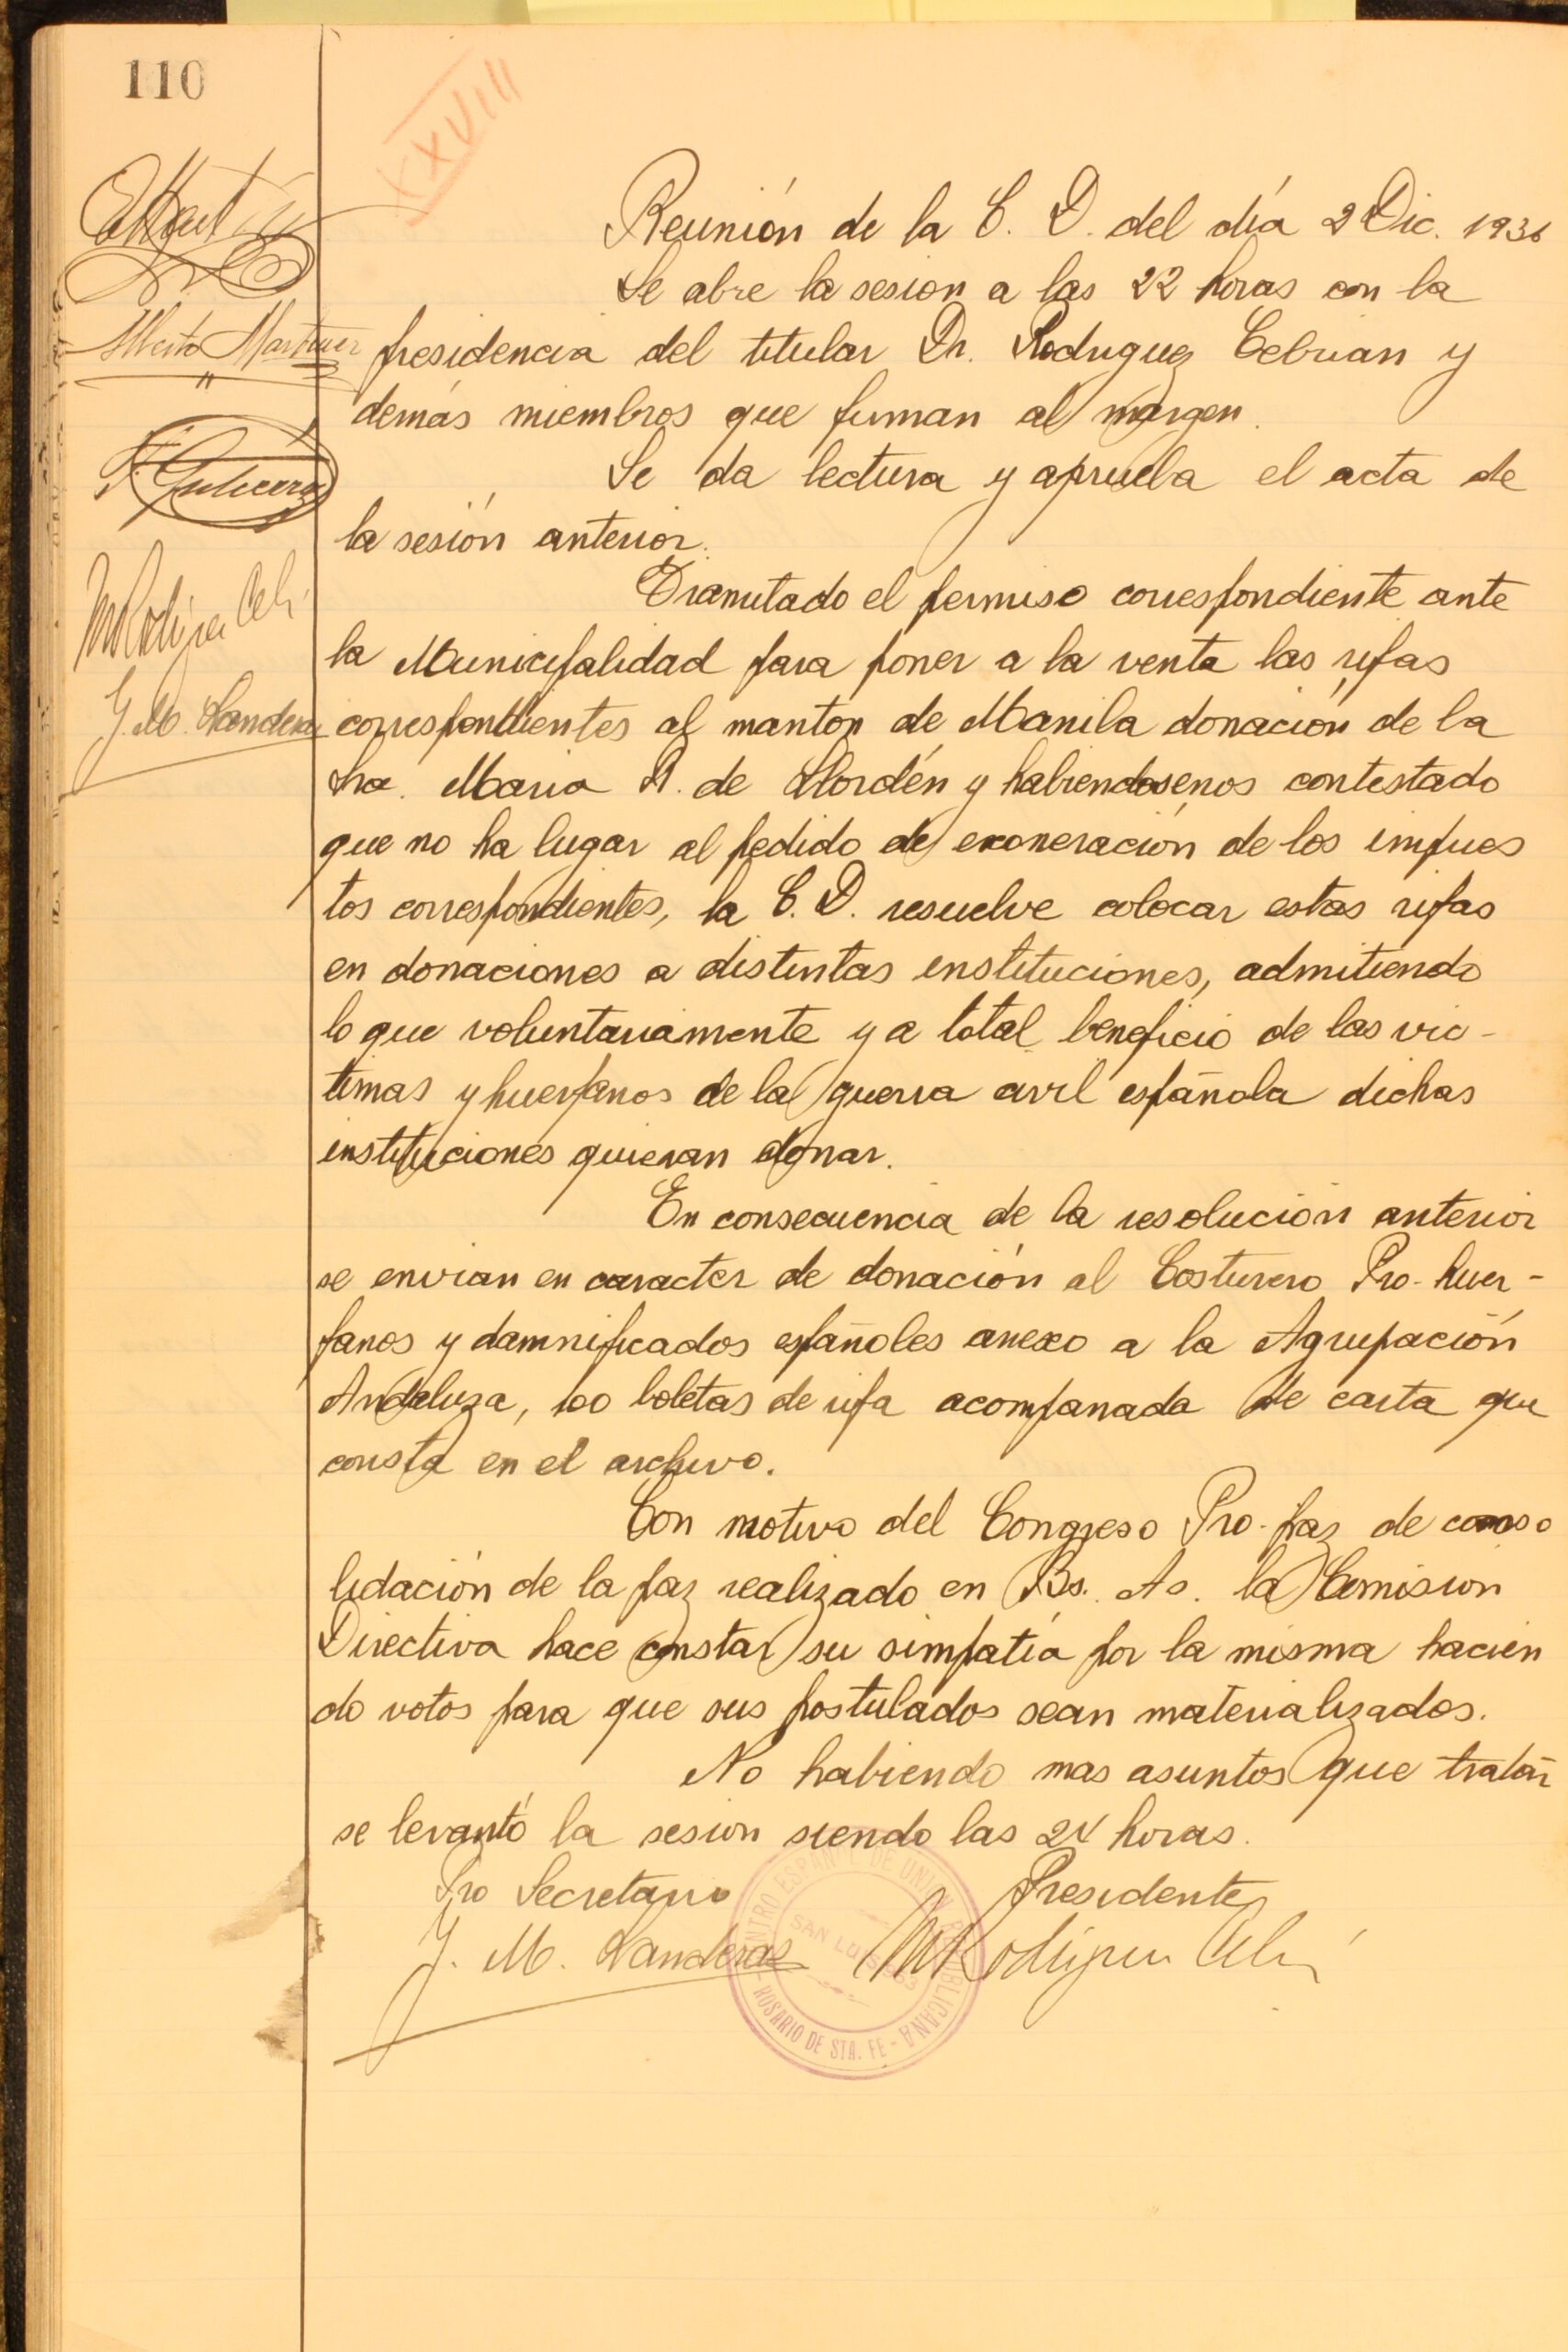 110
XXVIII
Reunión de la C. D. del día 2 Dic. 1936
Se abre la sesion a las 22 horas con la
Alberto Martinez
presidencia del titular Dr. Rodriguez Cebrian y
demás miembros que firman al margen.
Se da lectura y aprueba el acta de
la sesión anterior.
Tramitado el permiso correspondiente ante
la Municipalidad para poner a la venta las rifas
J. M. Landeras
correspondientes al manton de Manila donación de la
Sra. Maria R. de Llordén y habiendosenos contestado
que no ha lugar al pedido de exoneración de los impues
tos correspondientes, la C. D. resuelve colocar estas rifas
en donaciones a distintas instituciones, admitiendo
lo que voluntariamente y a total beneficio de las vic-
timas y huerfanos de la guerra civil española dichas
instituciones quieran donar.
En consecuencia de la resolución anterior
se envian en caracter de donación al Costurero Pro-huer-
fanos y damnificados españoles anexo a la Agrupación
Andaluza, 100 boletas de rifa acompanada de carta que
consta en el archivo.
Con motivo del Congreso Pro-paz de conso
lidación de la paz realizado en Bs. As. la Comision
Directiva hace constar su simpatía por la misma hacien
do votos para que sus postulados sean materializados.
No habiendo mas asuntos que tratar
se levantó la sesion siendo las 24 horas.
Pro Secretario Presidente
J. M. Landeras
CENTRO ESPAÑOL DE UNION REPUBLICANA
SAN LUIS
ROSARIO DE STA. FE